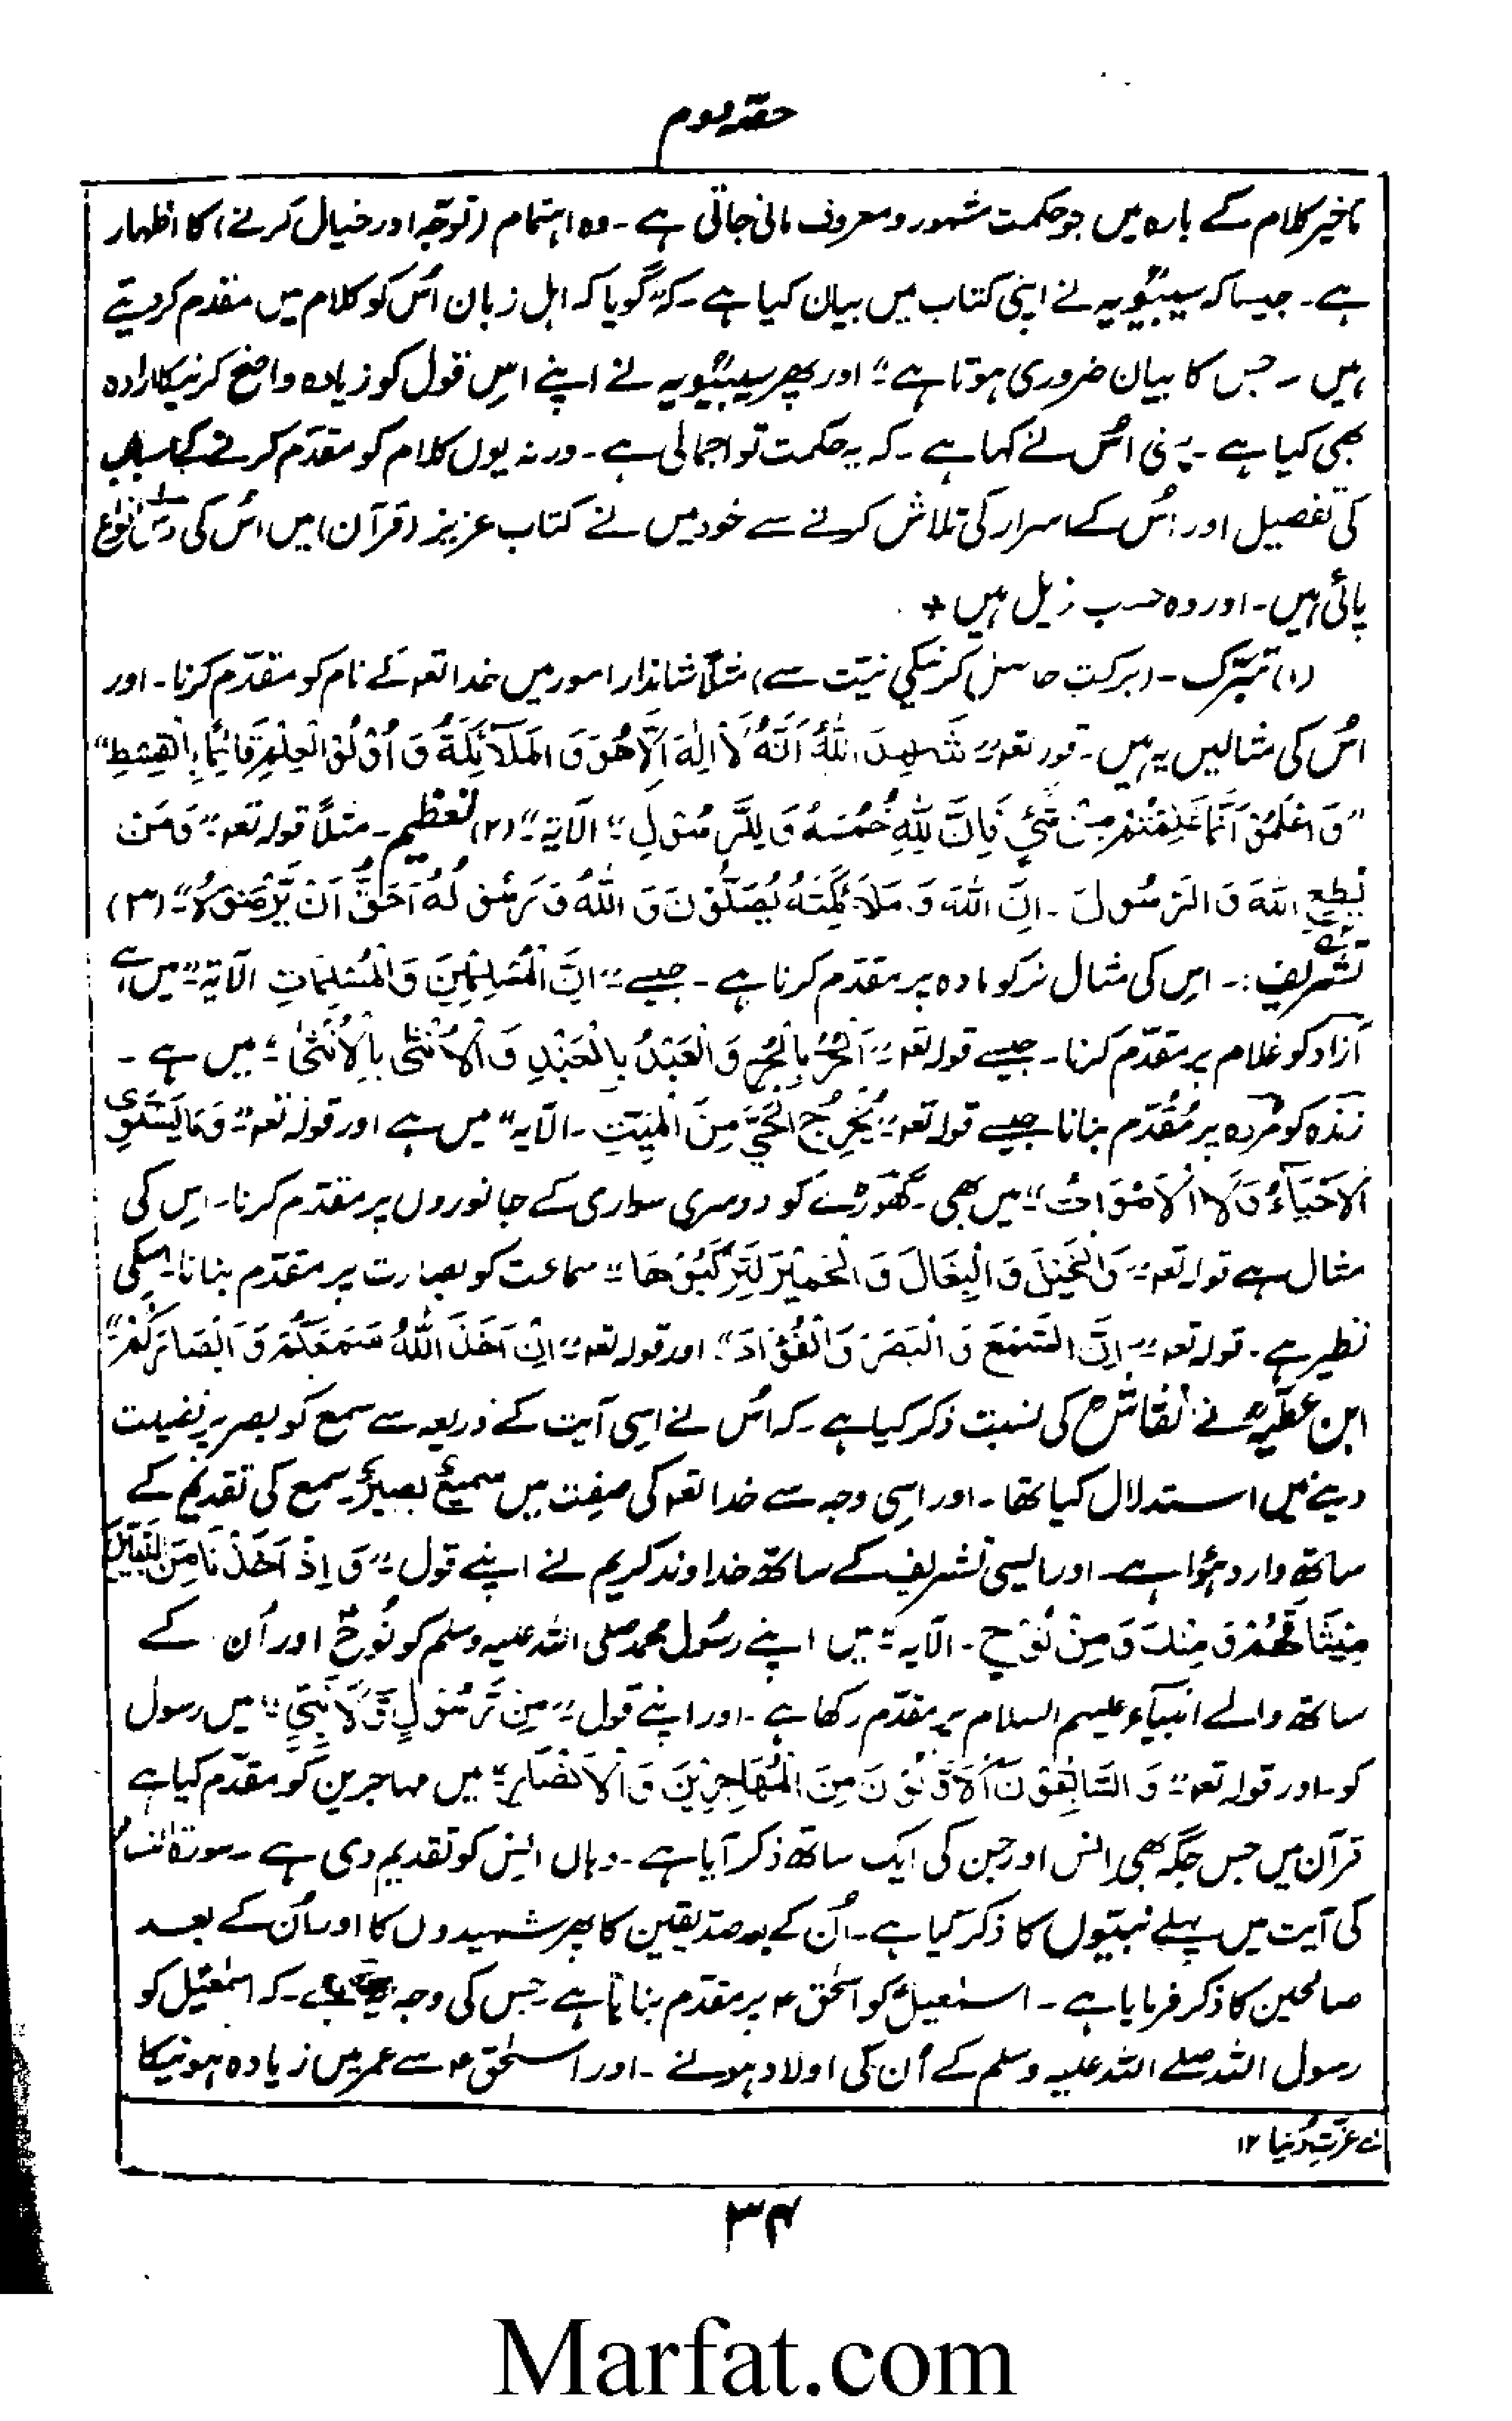 حصّہ دوم
تاخیر کلام کے بارہ میں جو حکمت مشہور و معروف مانی جاتی ہے۔ وہ اہتمام (توجّہ اور خیال کرنے) کا اظہار
ہے۔ جیسا کہ سیبَوَیہ نے اپنی کتاب میں بیان کیا ہے۔ کہ "گویا کہ اہل زبان اُس کو کلام میں مقدم کر دیتے
ہیں۔ جس کا بیان ضروری ہوتا ہے" اور پھر سیبَوَیہ نے اپنے اِس قول کو زیادہ واضح کرنیکا ارادہ
بھی کیا ہے۔ یعنی اُس نے کہا ہے۔ کہ یہ حکمت تو اجمالی ہے۔ ورنہ یوں کلام کو مقدّم کرنے کے اسباب
کی تفصیل اور اُس کے اسرار کی تلاش کرنے سے خود میں نے کتاب عزیز (قرآن) میں اُس کی دس انواع
پائی ہیں۔ اور وہ حسب ذیل ہیں +
(۱) تبرّک۔ (برکت حاصل کرنیکی نیّت سے) مثلًا شاندار امور میں خدا تعہ کے نام کو مقدّم کرنا۔ اور
اُس کی مثالیں یہ ہیں۔ قولہ تعہ "شَهِدَ اللّٰهُ اَنَّهٗ لَآ اِلٰهَ اِلَّا هُوَ وَ الْمَلَآئِكَةُ وَ اُولُوا الْعِلْمِ قَائِمًا بِالْقِسْطِ"
"وَ اعْلَمُوْا اَنَّمَا غَنِمْتُمْ مِنْ شَيْءٍ فَاِنَّ لِلّٰهِ خُمُسَهٗ وَ لِلرَّسُوْلِ" الآیۃ" (۲) تعظیم۔ مثلاً قولہ تعہ "وَ مَنْ
یُطِعِ اللّٰهَ وَ الرَّسُولَ۔ اِنَّ اللّٰهَ وَ مَلَآئِكَتَهٗ یُصَلُّوْنَ وَ اللّٰهُ وَ رَسُوْلُهٗ اَحَقُّ اَنْ یُّرْضُوْهُ" (۳)
تشریف:۔ اِس کی مثال نر کو مادہ پر مقدّم کرنا ہے۔ جیسے "اِنَّ الْمُسْلِمِیْنَ وَ الْمُسْلِمَاتِ الآیۃ" میں ہے
آزاد کو غلام پر مقدّم کرنا۔ جیسے قولہ تعہ "اَلْحُرُّ بِالْحُرِّ وَ الْعَبْدُ بِالْعَبْدِ وَ الْاُنْثٰى بِالْاُنْثٰى" میں ہے۔
زندہ کو مُردہ پر مُقدّم بنانا جیسے قولہ تعہ "یُخْرِجُ الْحَيَّ مِنَ الْمَيِّتِ۔ الآیہ" میں ہے اور قولہ تعہ "وَ مَا یَسْتَوِی
الْاَحْیَآءُ وَ لَا الْاَمْوَاتُ" میں بھی۔ گھوڑے کو دوسری سواری کے جانوروں پر مقدّم کرنا۔ اِس کی
مثال ہے قولہ تعہ "وَ الْخَیْلَ وَ الْبِغَالَ وَ الْحَمِیْرَ لِتَرْكَبُوْهَا" سماعت کو بصارت پر مقدّم بنانا۔ اسکی
نظیر ہے۔ قولہ تعہ "اِنَّ السَّمْعَ وَ الْبَصَرَ وَ الْفُؤَادَ"۔ اور قولہ تعہ "اِنْ اَخَذَ اللّٰهُ سَمْعَكُمْ وَ اَبْصَارَكُمْ"
ابن عطیّہ نے نقاش کی نسبت ذکر کیا ہے۔ کہ اُس نے اِسی آیت کے ذریعہ سے سمع کو بصر پر فضیلت
دینے میں استدلال کیا تھا۔ اور اِسی وجہ سے خدا تعہ کی صفت میں سَمِیْعٌ بَصِیْرٌ سمع کی تقدیم کے
ساتھ وارد ہُوا ہے۔ اور ایسی تشریف کے ساتھ خداوند کریم نے اپنے قول "وَ اِذْ اَخَذْنَا مِنَ النَّبِیّٖنَ
مِیْثَاقَهُمْ وَ مِنْكَ وَ مِنْ نُوْحٍ۔ الآیہ" میں اپنے رسُول محمد صلی اللہ علیہ وسلم کو نُوحؑ اور اُن کے
ساتھ والے انبیآء علیہم السلام پر مقدّم رکھا ہے۔ اور اپنے قول "مِنْ رَّسُوْلٍ وَّ لَا نَبِیٍّ" میں رسول
کو۔ اور قولہ تعہ "وَ السَّابِقُوْنَ الْاَوَّلُوْنَ مِنَ الْمُهَاجِرِیْنَ وَ الْاَنْصَارِ" میں مہاجرین کو مقدّم کیا ہے
قرآن میں جس جگہ بھی اِنس اور جِن کی ایک ساتھ ذکر آیا ہے۔ وہاں اِنس کو تقدیم دی ہے۔ سورۃ النساء
کی آیت میں پہلے نبیّوں کا ذکر کیا ہے۔ اُن کے بعد صدیقین کا پھر شہیدوں کا اور اُن کے بعد
صالحین کا ذکر فرمایا ہے۔ اسمٰعیلؑ کو اسحٰقؑ پر مقدّم بنایا ہے۔ جس کی وجہ یہ ہے۔ کہ اسمٰعیل کو
رسول اللہ صلے اللہ علیہ وسلم کے اُن کی اولاد ہونے۔ اور اسحٰقؑ سے عمر میں زیادہ ہونیکا
لہ عزّتِ دُنیا ۱۲
۳۴
Marfat.com